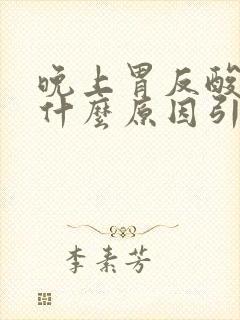 晚上胃反酸
什麼原因引
李素芳